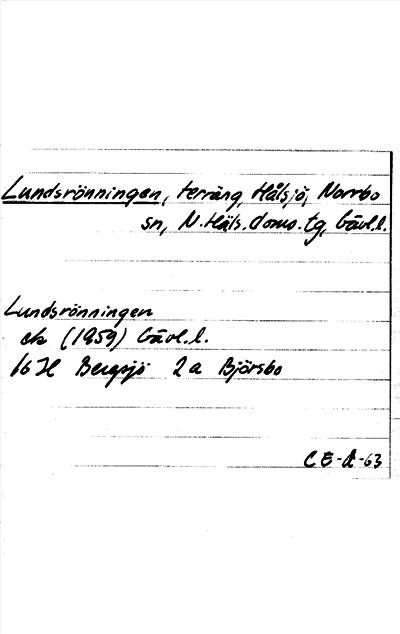 Lundsrönningen, terräng, Hålsjö, Norrbo
sn, N.Häls.doms.tg, Gävl.l.
Lundsrönningen
ek (1959) Gävl.l.
16H Bergsjö 2a Björsbo
CE-A-63